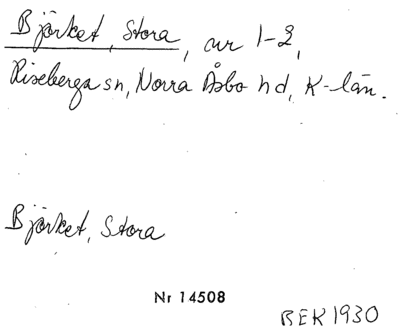 Björket, Stora, nr 1-2,
Riseberga sn, Norra Åsbo hd, K-län.
Björket, Stora
Nr 14508
BEK 1930